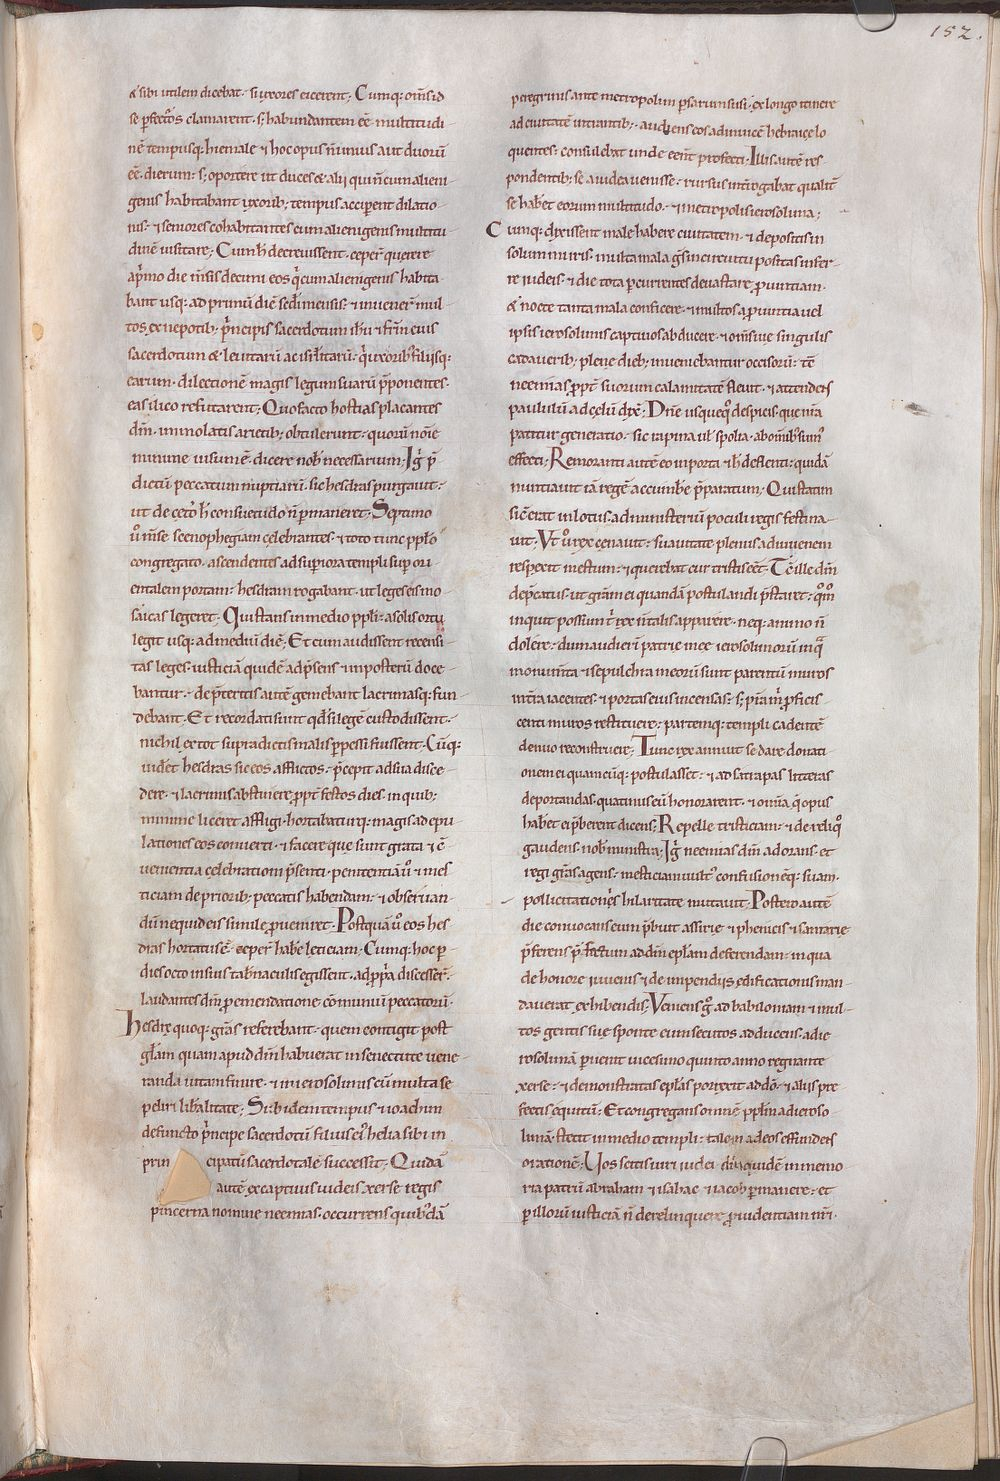 152.
& sibi utilem dicebat. si uxores eicerent; Cumq; om̄s id
se p̄fect̄os clamarent. s; habundantem eē multitudi
nē tempusq; hiemale & hoc opus n̄ unius aut duorū
eē dierum. s; oportere ut duces & alij qui n̄c cum alieni
genis habitabant uxorib; tempus acciperent dilatio
nis. & seniores cohabitantes cum alienigenis multitu
dinē uisitare; Cum h̄ decreuissent. ceper̄ querere
a p̄mo die m̄sis decimi eos q̄ cum alienigenis habita
bant usq; ad primū diē seq̄ mensis. & inuener̄ mul
tos ex nepotib; p̄ncipis sacerdotum ihū & fr̄m eius
sacerdotum & leuitarū ac isrl̄itarū. q̄ uxorib; filijsq;
earum. dilectionē magis legum suarū p̄ponentes.
eas ilico refutarent; Quo facto hostias placantes
dm̄. immolatis arietib; obtulerunt. quorū noīe
minime uisum ē. dicere nob̄ necessarium; Iḡ p̄
dictū peccatum nuptiarū. sic hesdras purgauit.
ut de cet̄o h̄ consuetudo n̄ p̄maneret. Septimo
ū m̄se scenophegiam celebrantes. & toto tunc pp̄lo
congregato. ascendentes ad sup̄iora templi sup̄ ori
entalem portam. hesdram rogabant. ut leges eis mo
saicas legeret. Qui stans in medio pp̄li. a solis ortu
legit usq; ad mediū diē; Et cum audissent recensi
tas leges. iusticiā quidē ad p̄sens & imposterū doce
bantur. de p̄teritis autē gemebant lacrimasq; fun
debant. Et recordati sunt qd̄ si legē custodissent.
nichil ex tot supradictis malis p̄pessi fuissent. Cūq;
uideret hesdras sic eos afflictos. p̄cepit ad sua disce
dere. & lacrimis abstinere ppt̄ festos dies. in quib;
minime liceret affligi. hortabaturq; magis ad epu
lationes eos conuerti. & facere que sunt grata & c̄
uenientia celebrationi p̄senti. penitentiā ū & mes
ticiam de priorib; peccatis habendam. & obseruan
dū ne quid eis simile p̄ueniret. Postquā ū eos hes
dras hortatus ē. ceper̄ habere leticiam. Cumq; hoc p̄
dies octo in suis tab̄naculis egissent. ad pp̄a discesser̄.
laudantes dm̄ p̄ emendatione cōmunium peccatorū.
Hesdre quoq; grās referebant. quem contigit post
glām quam apud dm̄ habuerat in senectute uene
randa uitam finire. & in ierosolimis cū multa se
peliri liberalitate; Sub idem tempus & ioachim
defuncto p̄ncipe sacerdotū filius ei helia sibi in
prin cipatū sacerdotale successit; Quidā
autē ex captiuis iudeis xerse regis
pincerna nomine neemias. occurrens quib;dā
peregrinis ante metropolim psarum susis. ex longo itinere
ad ciuitatē intrantib;. audiens eos ad inuicē hebraice lo
quentes. consulebat unde eent profecti; Illis autē res
pondentib; se a iudea uenisse. rursus int̄rogabat qualit̄
se haberet eorum multitudo. & metropolis ierosolima;
Cumq; dixissent male habere ciuitatem. & depositis in
solum muris. multa mala ḡs in circuitu positas infer
re iudeis. & die tota p̄currentes deuastare p̄uintiam.
& nocte tanta mala conficere. & multos a p̄uintia uel
ipsis ierosolimis captiuos abducere. & om̄s uie singulis
cadauerib; plene dieb; inueniebantur occisorū. tē
neemias ppt̄ suorum calamitatē fleuit. & attendens
paululū ad celū dix̄; Dn̄e usquequo despicis. que nr̄a
patitur generatio. sic rapina ul̄ spolia. ab omib; sum̄
effecti; Remoranti autē eo in porta & h̄ deflenti. quidā
nuntiauit iā regē accumbere p̄paratum; Qui statim
sic̄ erat in lotus. ad ministerium poculi regis festina
uit. Vt ū rex cenauit. suauitate plenus ad iuuenem
respexit mestum. & querebat cur tristis eēt. Tē ille dm̄
dep̄catus. ut gr̄am ei quandā postulandi p̄staret. qm̄o
inquit possum t̄ rex n̄ talis apparere. neq; animo n̄
dolere. dum audierī patrie mee ierosolimorū inq̄
monum̄ta & sepulchra meorū sunt parentū muros
int̄ra iacentes. & portas eius incensas. s; p̄iā m̄ p̄ficis
centi muros restituere. partemq; templi cadentē
denuo reconstruere; Tunc rex annuit se dare donati
onem ei quamcūq; postulasset. & ad satrapas litteras
deportandas. quatinus eū honorarent. & om̄ia q̄ opus
haberet ei p̄berent dicens; Repelle tristiciam. & de reliq̄o
gaudens. nob̄ ministra; Iḡ neemias dm̄ adorans. et
regi grās agens. mesticiam uult̄ confusionēq; suam.
pollicitationes hilaritate mutauit. Postero autē
die conuocans eum p̄buit assirie & phenicis & samarie
p̄ferens p̄fectum addm̄ epl̄am deferendam. in qua
de honore iuuenis & de inpendijs edificationis man
dauerat exhibendis; Veniens ḡ ad babiloniam & mul
tos gentis sue sponte eum secutos adducens. ad ie
rosolimā p̄uenit uicesimo quinto anno regnante
xerse. & demonstratas epl̄as porrexit addō. & aliis pre
fectis equitū. Et congregans omnē pp̄lm ad ieroso
limā. stetit in medio templi. talem ad eos effundens
orationē; Uos scitis uiri iudei. dm̄ quidē in memo
ria patrū abraham & isahac & iacob p̄manere. et
p̄ illorū iusticiā n̄ derelinquere p̄uidentiam nr̄i.